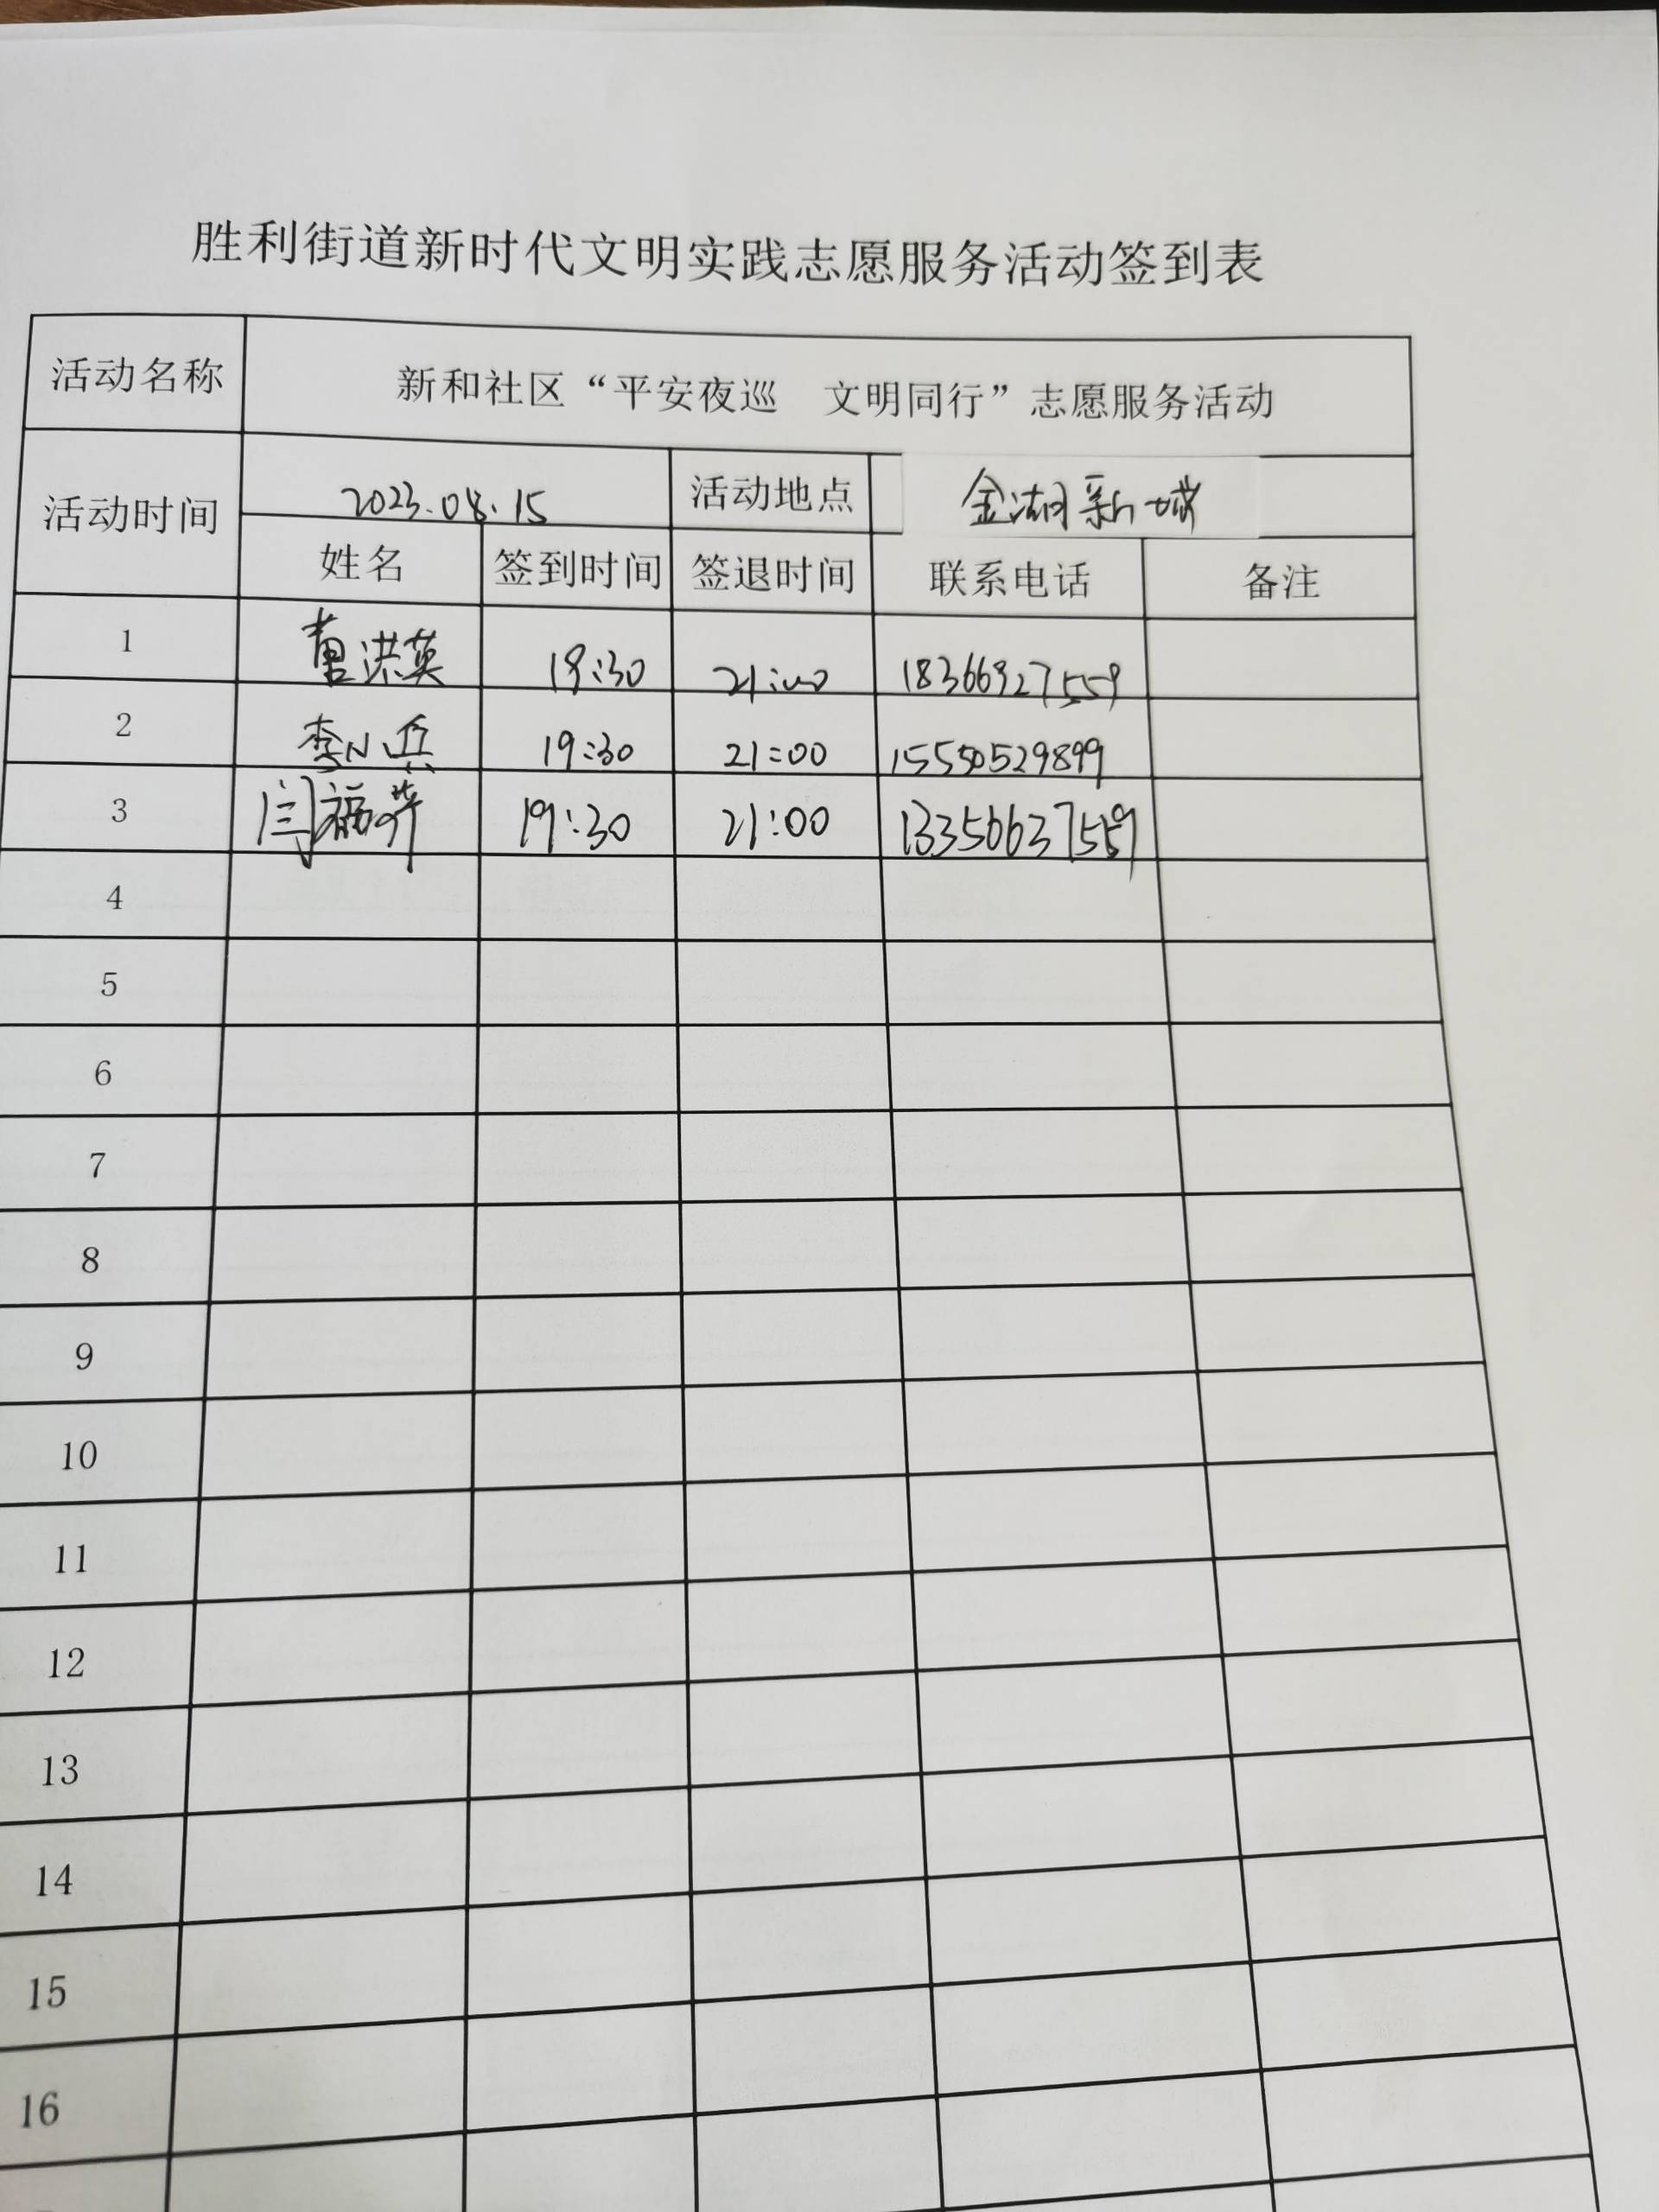 胜利街道新时代文明实践志愿服务活动签到表
活动名称 新和社区“平安夜巡 文明同行”志愿服务活动
活动时间 2023.08.15 活动地点 金湖新城
姓名 签到时间 签退时间 联系电话 备注
1 曹洪英 19:30 21:00 18366927559
2 李小兵 19:30 21:00 15550529899
3 闫福 19:30 21:00 13356637559
4
5
6
7
8
9
10
11
12
13
14
15
16